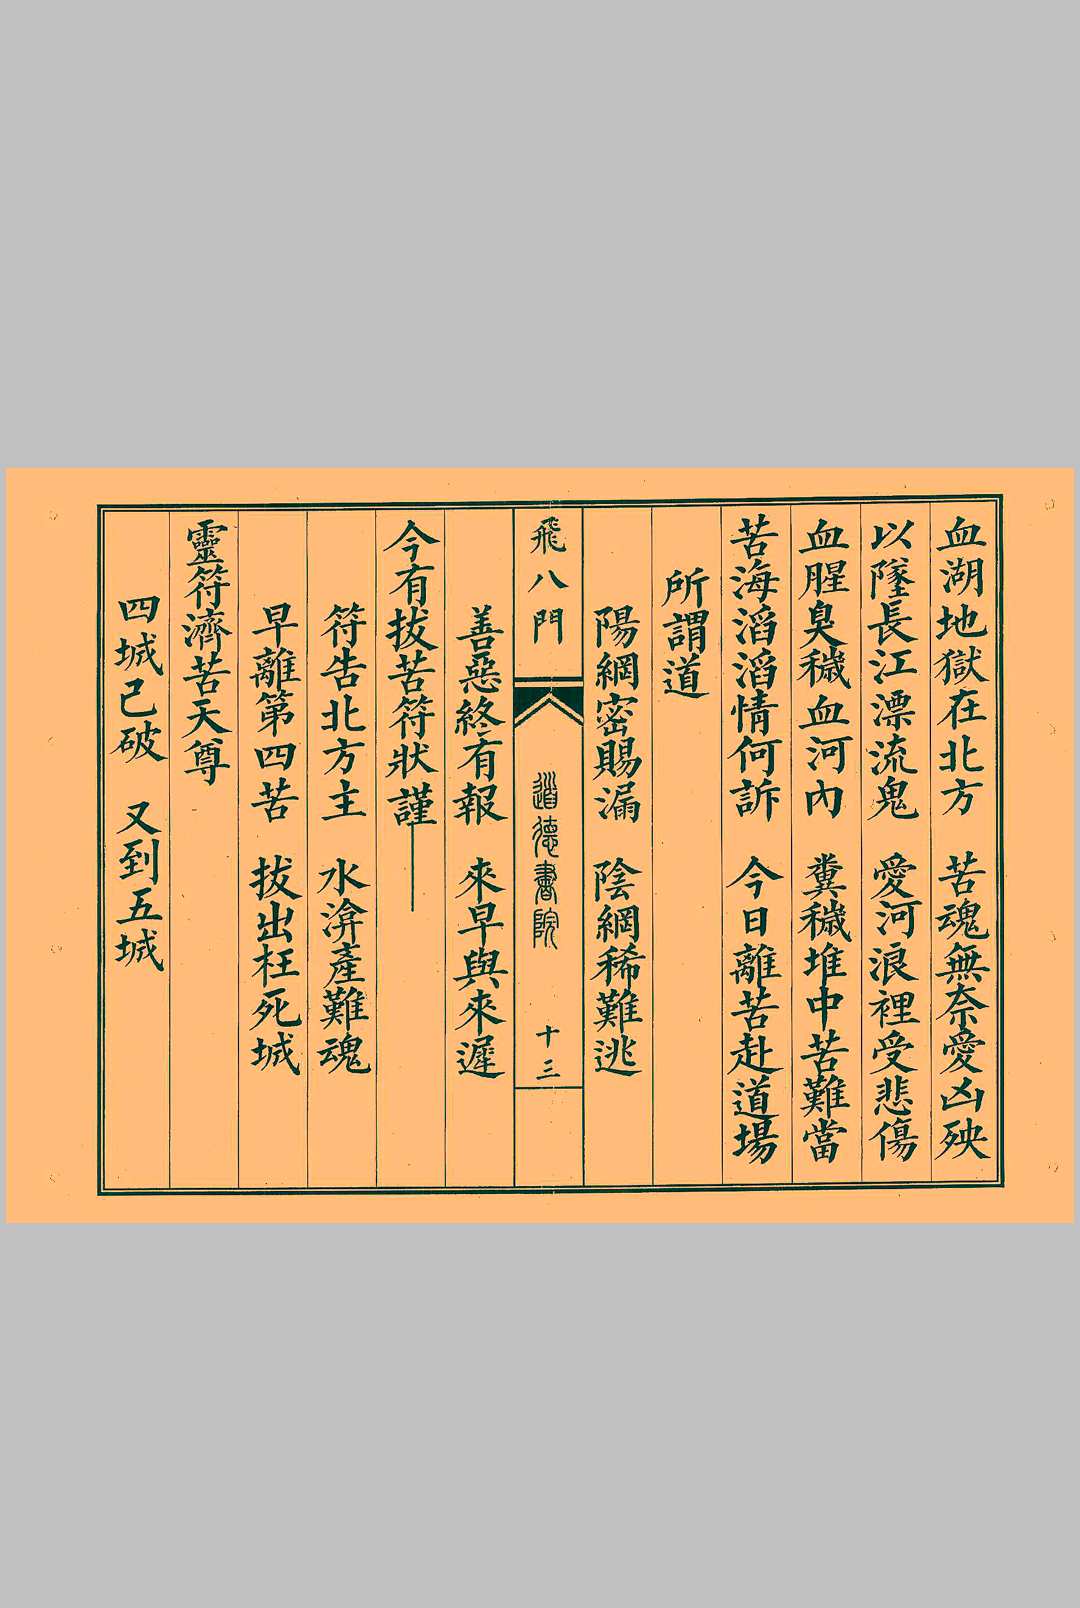 血湖地獄在北方　苦魂無奈愛凶殃
以墜長江漂流鬼　愛河浪裡受悲傷
血腥臭穢血河內　糞穢堆中苦難當
苦海滔滔情何訴　今日離苦赴道場
所謂道
陽綱密賜漏　陰綱稀難逃
飛八門
道德書院
十三
善惡終有報　來早與來遲
今有拔苦符狀謹
符告北方主　水渰產難魂
早離第四苦　拔出枉死城
靈符濟苦天尊
四城已破　又到五城